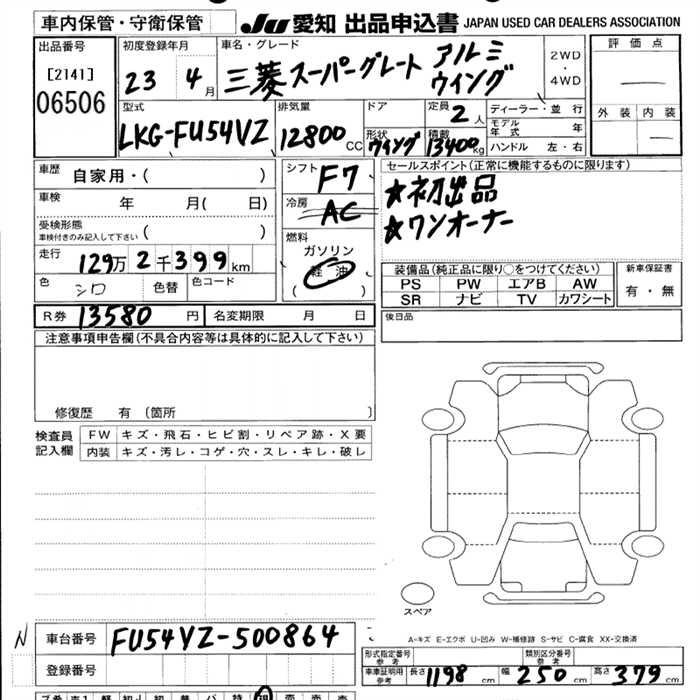 車内保管・守衛保管 JU 愛知 出品申込書 JAPAN USED CAR DEALERS ASSOCIATION
出品番号 [2141] 06506
初度登録年月 23 4月
車名・グレード 三菱スーパーグレート アルミウィング
2WD・4WD
評価点 —
外装 内装 —
型式 LKG-FU54VZ
排気量 12800cc
ドア
形状 ウィング
定員 2人
積載 13400kg
ディーラー・並行
モデル年式 年
ハンドル 左・右
車歴 自家用・( )
車検 年 月( 日)
受検形態 ( )
車検付きのみ記入して下さい
走行 129万2千399km
色 シロ 色替 色コード
シフト F7
冷房 AC
燃料 ガソリン
軽油
( )
セールスポイント(正常に機能するものに限ります)
★初出品
★ワンオーナー
装備品(純正品に限り○をつけてください)
PS PW エアB AW
SR ナビ TV カワシート
新車保証書
有・無
R券 13580円 名変期限 月 日
後日品
注意事項申告欄(不具合内容等は具体的に記入して下さい)
修復歴 有(箇所 )
検査員記入欄
FW キズ・飛石・ヒビ割・リペア跡・X要
内装 キズ・汚レ・コゲ・穴・スレ・キレ・破レ
スペア
A-キズ E-エクボ U-凹み W-補修跡 S-サビ C-腐食 XX-交換済
N 車台番号 FU54VZ-500864
登録番号
形式指定番号 参考 類別区分番号 参考
車庫証明用 参考 長さ 1198cm 幅 250cm 高さ 379cm